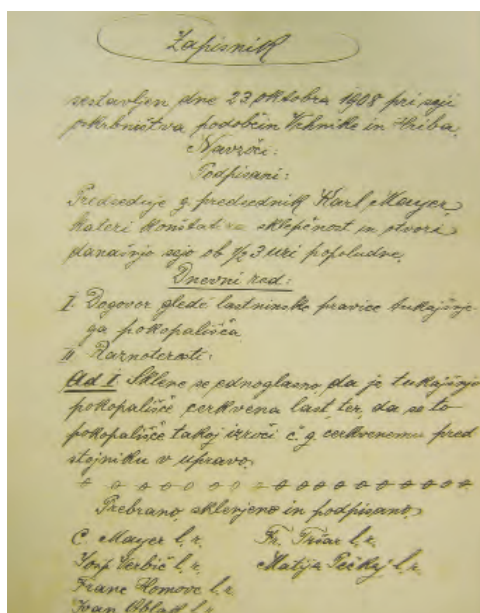 Zapisnik
sestavljen dne 23 oktobra 1908 pri seji
oskrbništva podobčin Vrhnike in Hriba.
Navzoči:
Podpisani:
Predseduje g. predsednik Karl Mayer,
kateri konštatira sklepčnost in otvori
današnjo sejo ob ½ 3 uri popoludne.
Dnevni red:
I. Dogovor gledé lastninske pravice tukajšnje-
ga pokopališča
II Raznoterosti:
Ad I. Sklene se jednoglasno, da je tukajšnjo
pokopališče cerkvena last, ter, da se to
pokopališče takoj izroči č. g. cerkvenemu pred
stojniku v upravo.
Prebrano, sklenjeno in podpisano.
C. Mayer l. r. Fr. Tršar l. r.
Josip Verbič l. r. Matija Pečkaj l. r.
Franc Homovc l. r.
Ivan Oblak l. r.